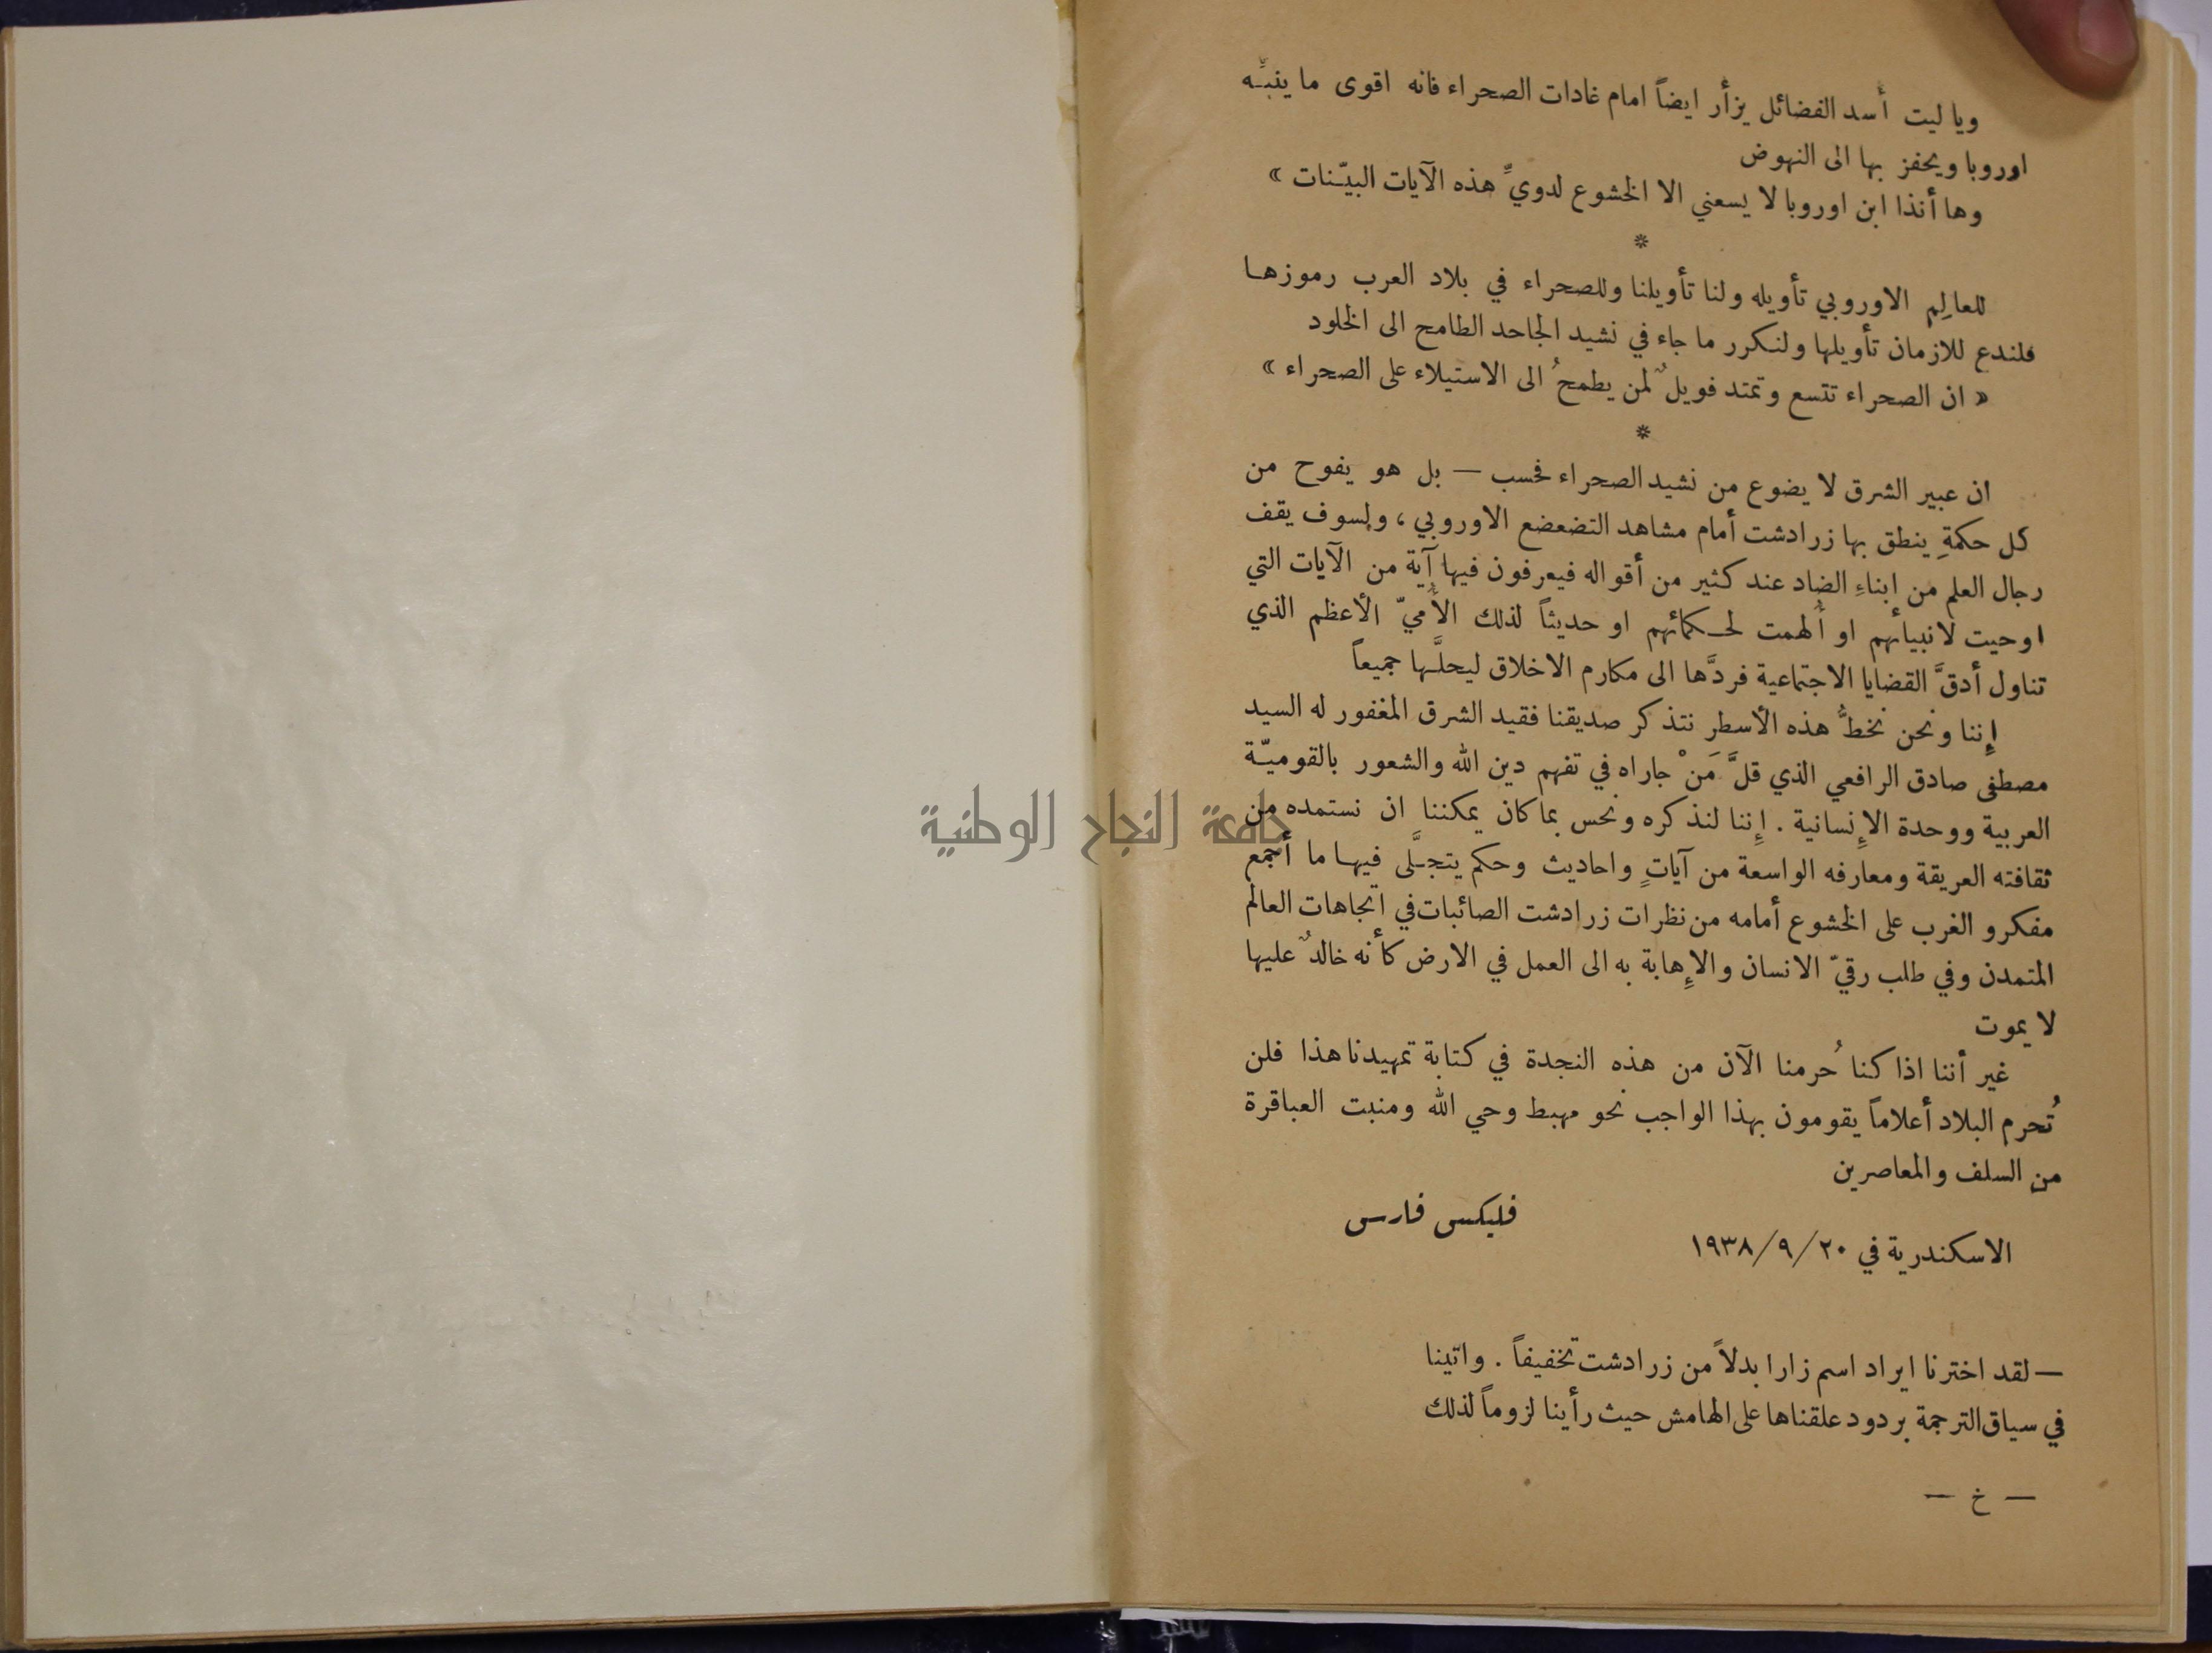 ويا ليت أسد الفضائل يزأر ايضاً امام غادات الصحراء فانه اقوى ما ينبّه
اوروبا ويحفز بها الى النهوض
وها أنذا ابن اوروبا لا يسعني الا الخشوع لدويِّ هذه الآيات البيّنات »
*
للعالِم الاوروبي تأويله ولنا تأويلنا وللصحراء في بلاد العرب رموزها
فلندع للازمان تأويلها ولنكرر ما جاء في نشيد الجاحد الطامح الى الخلود
« ان الصحراء تتسع وتمتد فويلٌ لمن يطمحُ الى الاستيلاء على الصحراء »
*
ان عبير الشرق لا يضوع من نشيد الصحراء فحسب — بل هو يفوح من
كل حكمةِ ينطق بها زرادشت أمام مشاهد التضعضع الاوروبي ، ولسوف يقف
رجال العلم من ابناءِ الضاد عند كثير من أقواله فيعرفون فيها آية من الآيات التي
اوحيت لانبيائهم او أُلهمت لحكمائهم او حديثاً لذلك الأُميّ الأعظم الذي
تناول أدقَّ القضايا الاجتماعية فردَّها الى مكارم الاخلاق ليحلَّها جميعاً
إِننا ونحن نخطُّ هذه الأسطر نتذكر صديقنا فقيد الشرق المغفور له السيد
مصطفى صادق الرافعي الذي قلَّ مَنْ جاراه في تفهم دين الله والشعور بالقوميّة
العربية ووحدة الإِنسانية . إِننا لنذكره ونحس بما كان يمكننا ان نستمده من
ثقافته العريقة ومعارفه الواسعة من آياتٍ واحاديث وحكم يتجلَّى فيها ما أجمع
مفكرو الغرب على الخشوع أمامه من نظرات زرادشت الصائبات في اتجاهات العالم
المتمدن وفي طلب رقيّ الانسان والإِهابة به الى العمل في الارض كأنه خالدٌ عليها
لا يموت
غير أننا اذا كنا حُرمنا الآن من هذه النجدة في كتابة تمهيدنا هذا فلن
تُحرم البلاد أعلاماً يقومون بهذا الواجب نحو مهبط وحي الله ومنبت العباقرة
من السلف والمعاصرين
فليكس فارس
الاسكندرية في ٢٠/٩/١٩٣٨
— لقد اخترنا ايراد اسم زارا بدلاً من زرادشت تخفيفاً . واتينا
في سياق الترجمة بردود علقناها على الهامش حيث رأينا لزوماً لذلك
— خ —
جامعة النجاح الوطنية